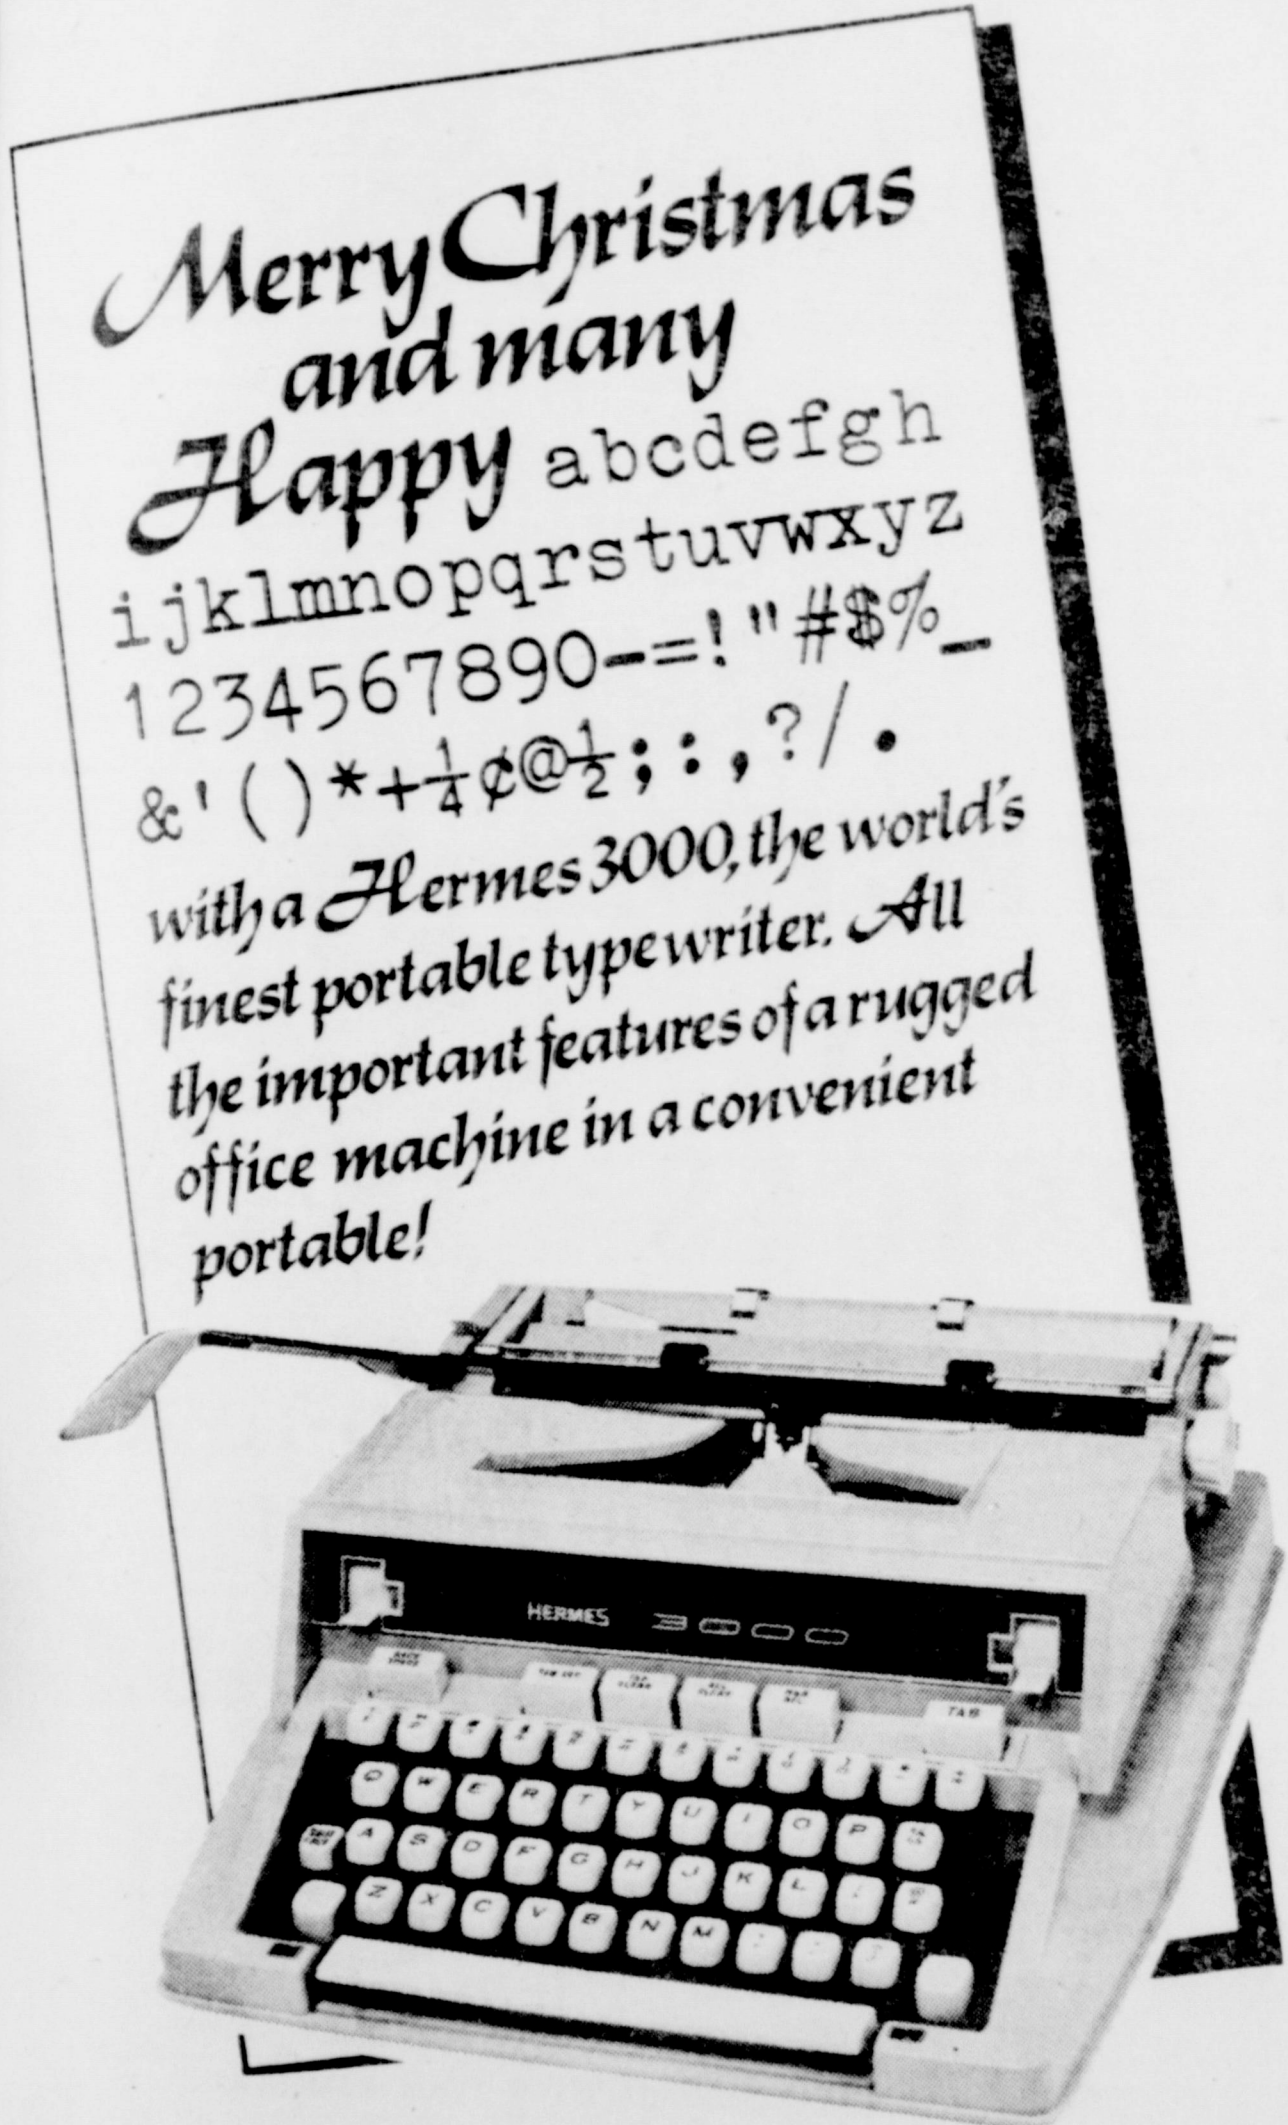 Merry Christmas
and many
Happy abcdefgh
ijklmnopqrstuvwxyz
1234567890-=!"#$%_
&'()*+¼¢@½;:,?/.
with a Hermes 3000, the world's
finest portable typewriter. All
the important features of a rugged
office machine in a convenient
portable!
HERMES 3000
BACK SPACE TAB SET TAB CLEAR ALL CLEAR MAR REL TAB
Q W E R T Y U I O P
A S D F G H J K L
Z X C V B N M